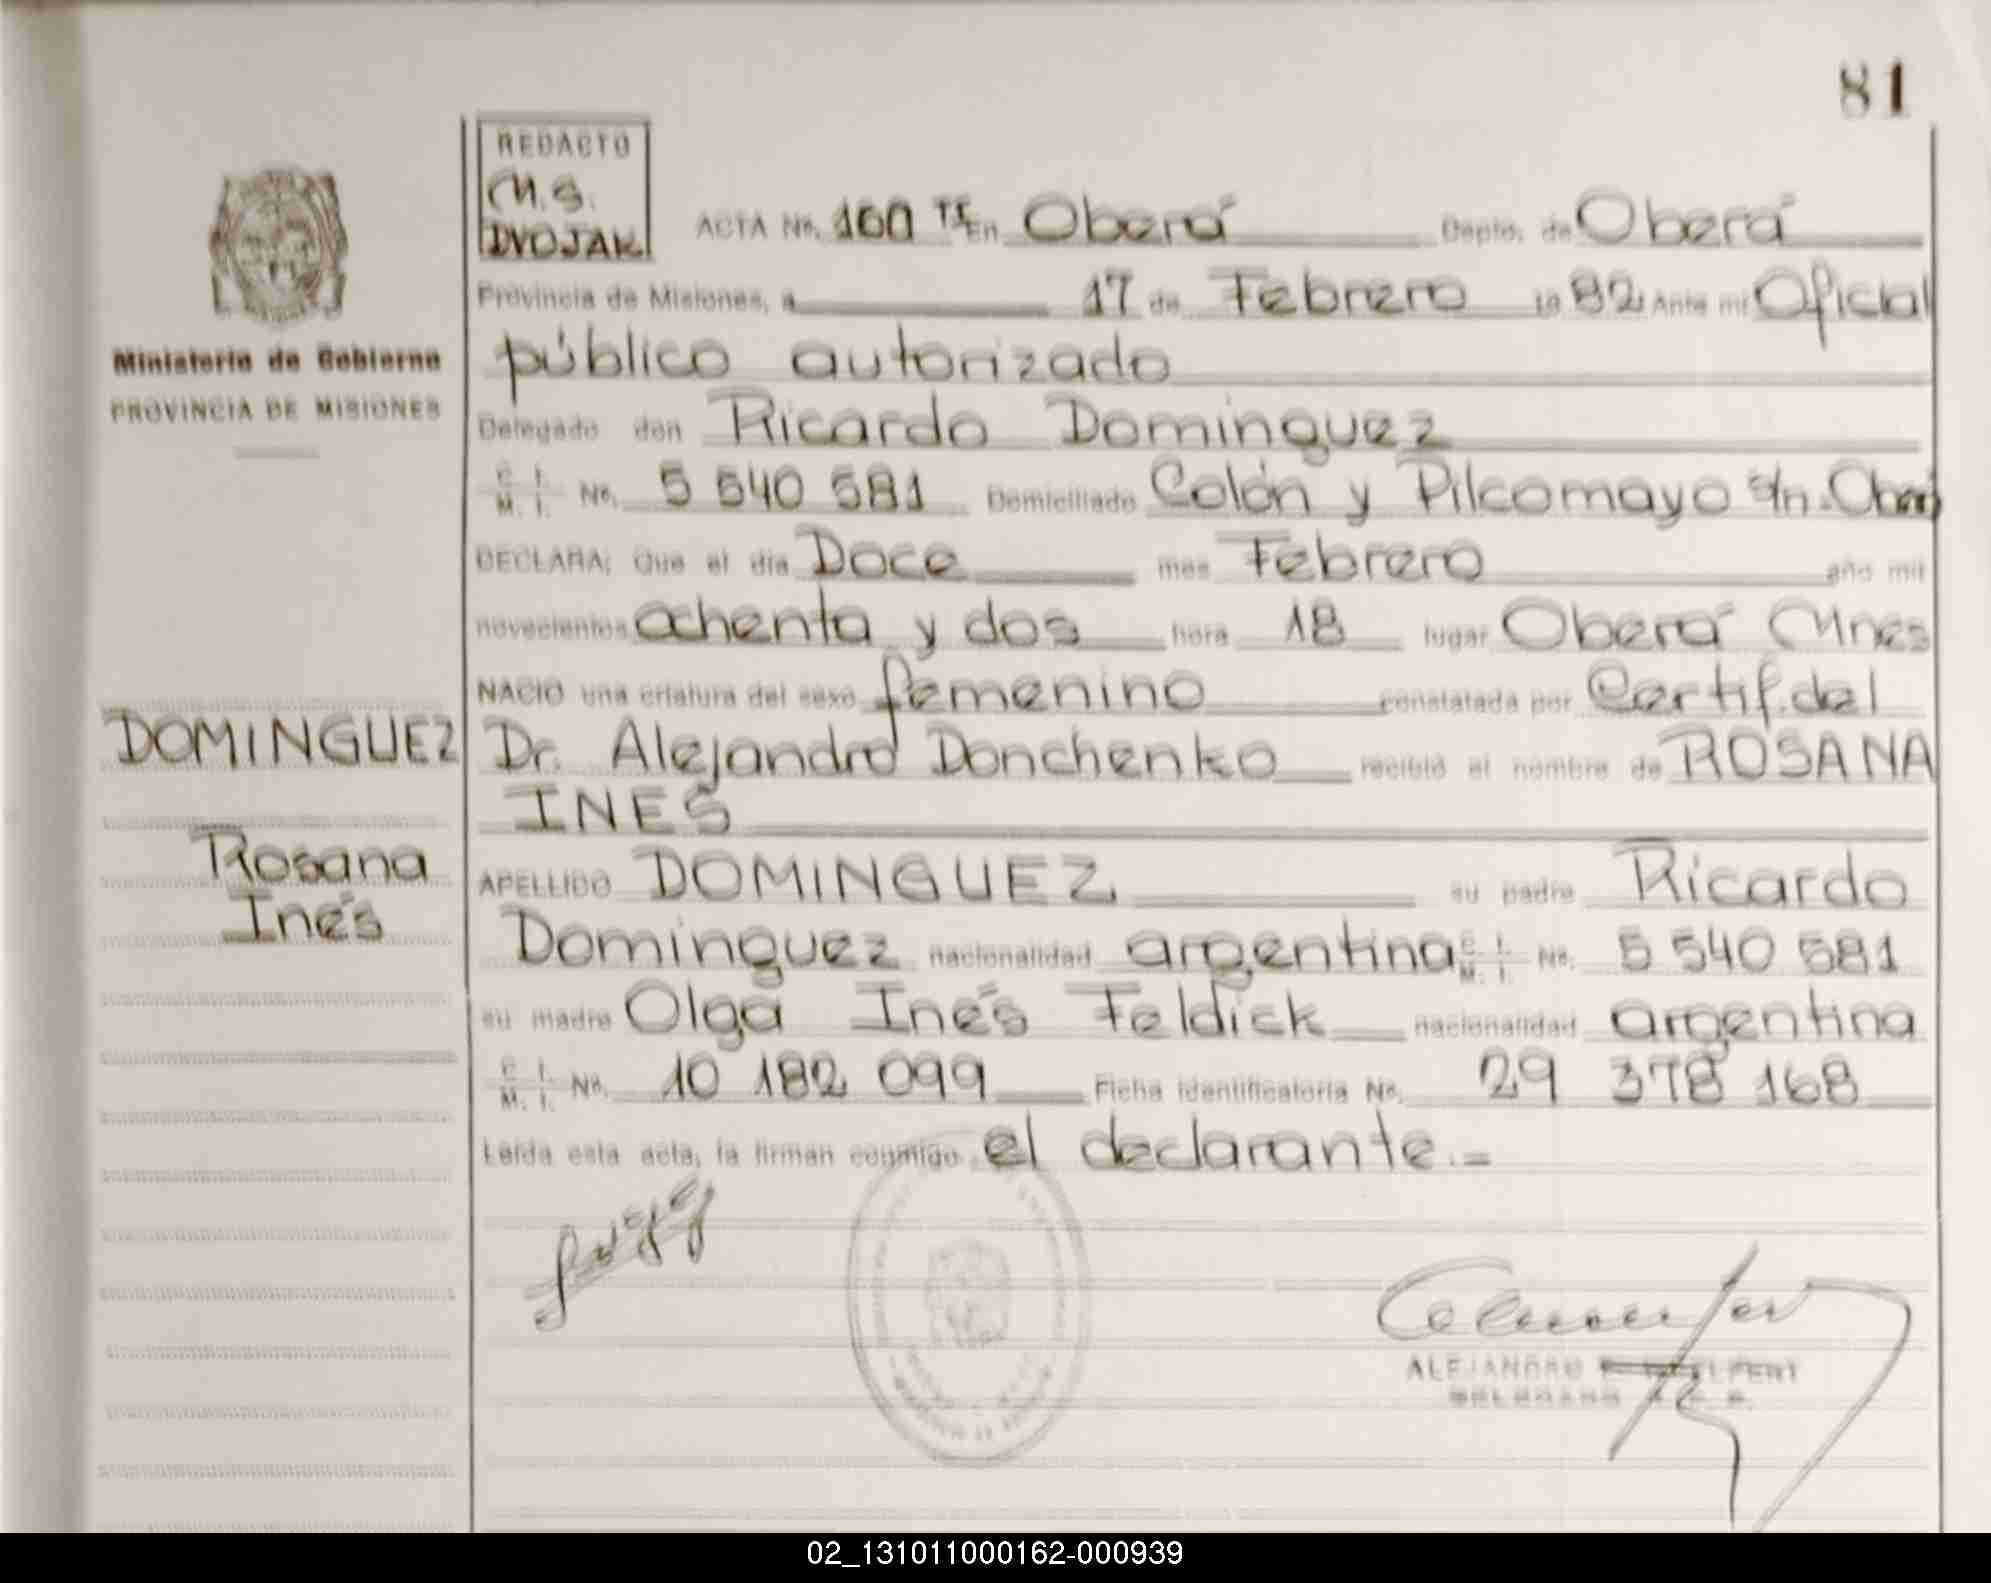 81
REDACTO
M.S.
DVOJAK
ACTA Nº. 160 TE En Oberá Depto. de Oberá
Provincia de Misiones, a 17 de Febrero 19 82 Ante mí Oficial
público autorizado
Delegado don Ricardo Domínguez
C. I. M. I. Nº. 5 540 581 Domiciliado Colón y Pilcomayo s/n. Oberá
DECLARA: Que el día Doce mes Febrero año mil
novecientos ochenta y dos hora 18 lugar Oberá Mnes
NACIO una criatura del sexo femenino constatada por Certif. del
Dr. Alejandro Donchenko recibió el nombre de ROSANA
INES
APELLIDO DOMINGUEZ su padre Ricardo
Domínguez nacionalidad argentina C. I. M. I. Nº. 5 540 581
su madre Olga Inés Feldick nacionalidad argentina
C. I. M. I. Nº. 10 182 099 Ficha identificatoria Nº. 29 378 168
Leída esta acta, la firman conmigo el declarante.=
Ministerio de Gobierno
PROVINCIA DE MISIONES
DOMINGUEZ
Rosana
Inés
ALEJANDRO
02_131011000162-000939